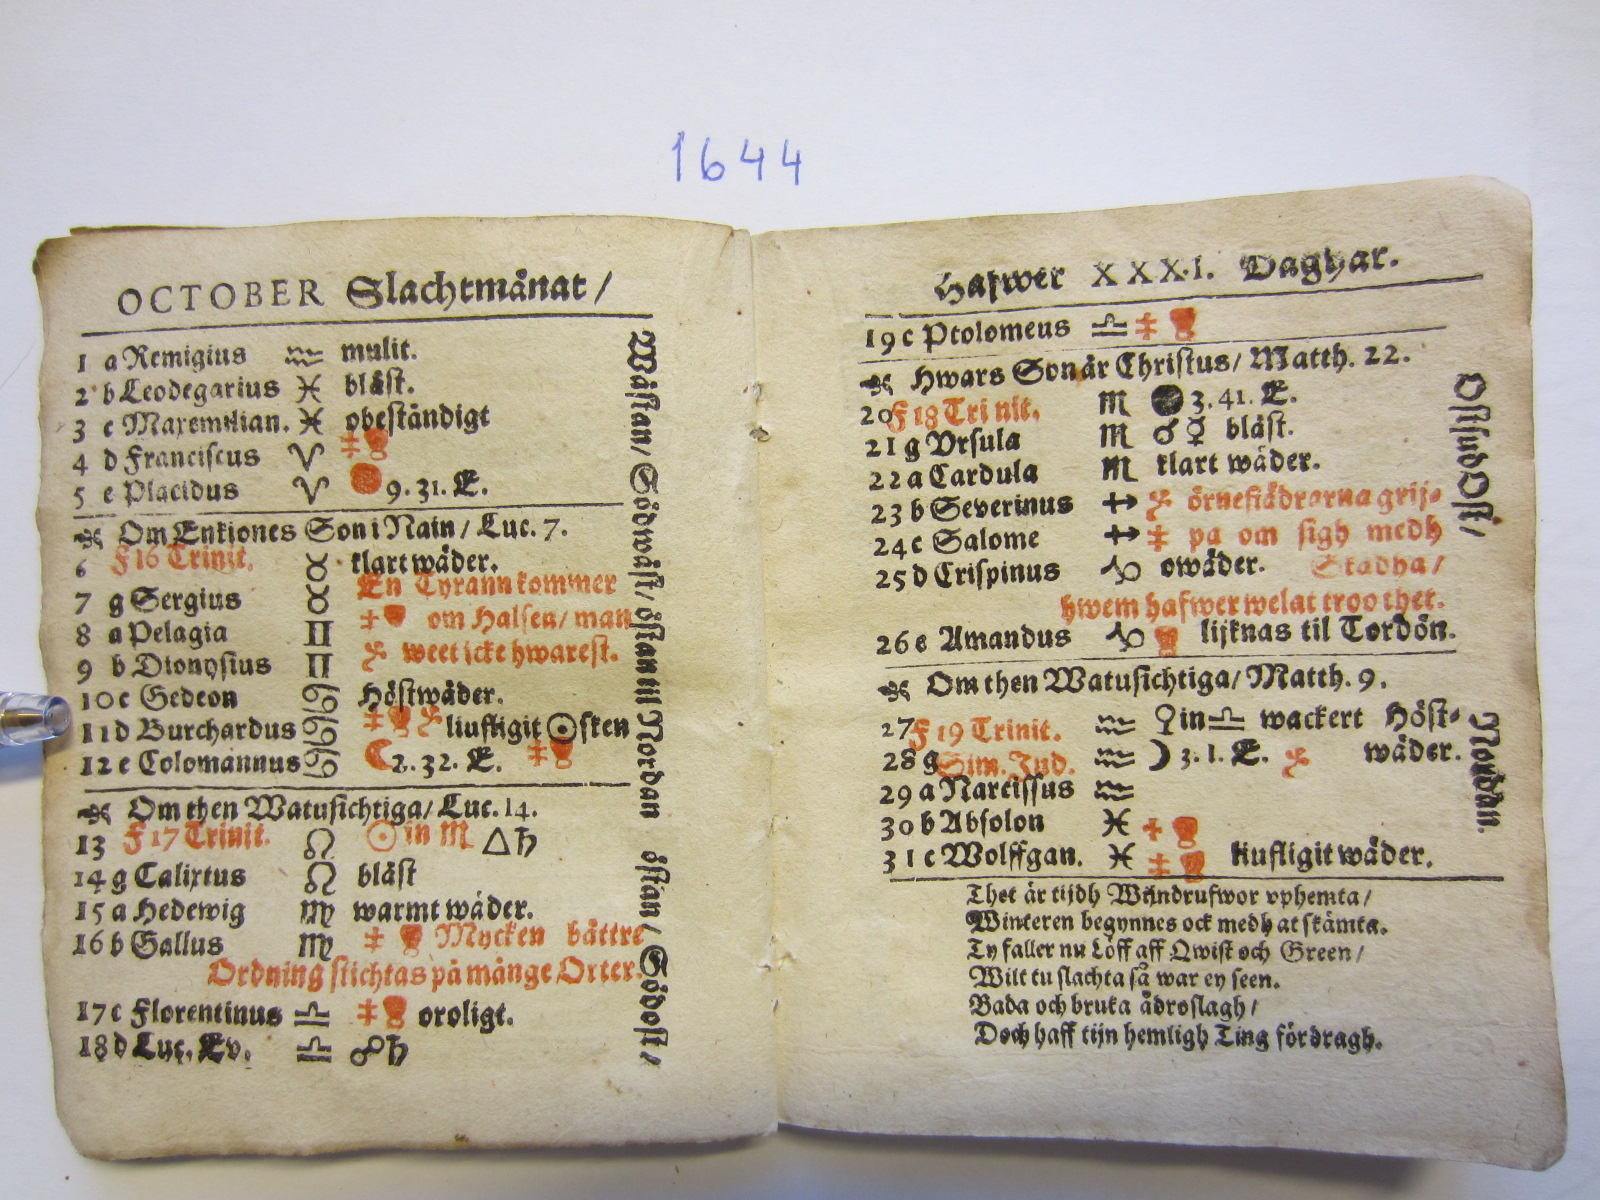 1644
OCTOBER Slachtmånat/
1 a Remigius ♒ mulit.
2 b Leodegarius ♓ bläst.
3 c Maxemilian. ♓ obeständigt
4 d Franciscus ♈
5 e Placidus ♈ 9. 31. E.
Om Enkiones Son i Nain/ Luc. 7.
6 F 16 Trinit. ♉ klart wäder.
En Tyrann kommer
7 g Sergius ♉ om Halsen/ man
8 a Pelagia ♊
9 b Dionysius ♊ weet icke hwarest.
10 c Gedeon ♋ Höstwäder.
11 d Burchardus ♋ liufligit ☉ sken
12 e Colomannus ♋ ☾ 2. 32. E.
Om then Watusichtiga/ Luc. 14.
13 F 17 Trinit. ♌ ☉ in ♏ △ ♄
14 g Calixtus ♌ bläst
15 a Hedewig ♍ warmt wäder.
16 b Gallus ♍ Mycken bättre
Ordning stichtas på månge Orter.
17 c Florentinus ♎ oroligt.
18 d Luc. Ev. ♎ ☍ ♄
Wästan/ Södwäst/ östan til Nordan östan/ Södost/
Hafwer XXXI. Daghar.
19 c Ptolomeus ♎
Hwars Son är Christus/ Matth. 22.
20 F 18 Trinit. ♏ 3. 41. E.
21 g Vrsula ♏ ♂ ☿ bläst.
22 a Cardula ♏ klart wäder.
23 b Severinus ♐ örnefiädrarna grij-
24 c Salome ♐ pa om sigh medh
25 d Crispinus ♑ owäder. Skadha/
hwem hafwer welat troo thet.
26 e Amandus ♑ lijknas til Tordön.
Om then Watusichtiga/ Matth. 9.
27 F 19 Trinit. ♒ ♀ in ♎ wackert Höst-
28 g Sim. Jud. ♒ ☽ 3. 1. E. wäder.
29 a Narcissus ♒
30 b Absolon ♓
31 c Wolffgan. ♓ liufligit wäder.
Ostsud Ost/
Nordan.
Thet är tijdh Wijndrufwor vphemta/
Winteren begynnes ock medh at skämta.
Ty faller nu Löff aff Qwist och Green/
Wilt tu slachta så war ey seen.
Bada och bruka ådroslagh/
Doch haff tijn hemligh Ting fördragh.